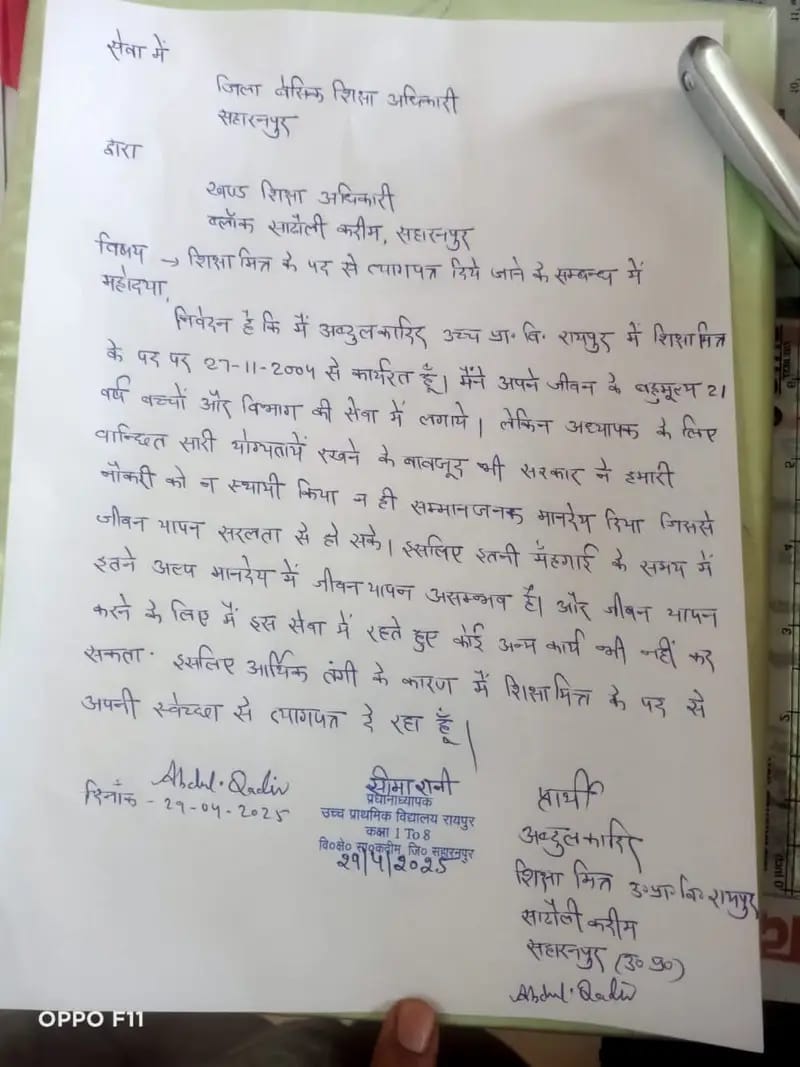 सेवा में
जिला बेसिक शिक्षा अधिकारी
सहारनपुर
द्वारा
खण्ड शिक्षा अधिकारी
ब्लॉक साढौली कदीम, सहारनपुर
विषय → शिक्षामित्र के पद से त्यागपत्र दिये जाने के सम्बन्ध में
महोदया,
निवेदन है कि मैं अब्दुलकादिर उच्च प्रा॰ वि॰ रायपुर में शिक्षामित्र
के पद पर 27-11-2004 से कार्यरत हूँ। मैंने अपने जीवन के बहुमूल्य 21
वर्ष बच्चों और विभाग की सेवा में लगाये। लेकिन अध्यापक के लिए
वान्छित सारी योग्यतायें रखने के बावजूद भी सरकार ने हमारी
नौकरी को न स्थायी किया न ही सम्मानजनक मानदेय दिया जिससे
जीवन यापन सरलता से हो सके। इसलिए इतनी मँहगाई के समय में
इतने अल्प मानदेय में जीवन यापन असम्भव है। और जीवन यापन
करने के लिए मैं इस सेवा में रहते हुए कोई अन्य कार्य भी नहीं कर
सकता॰ इसलिए आर्थिक तंगी के कारण मैं शिक्षामित्र के पद से
अपनी स्वेच्छा से त्यागपत्र दे रहा हूँ।
Abdul. Qadir
दिनाँक - 29-04-2025
सीमा रानी
प्रधानाध्यापक
उच्च प्राथमिक विद्यालय रायपुर
कक्षा 1 To 8
वि०क्षे० सा०कदीम, जि० सहारनपुर
29/4/2025
प्रार्थी
अब्दुलकादिर
शिक्षा मित्र उ॰प्रा॰ वि॰ रायपुर
साढौली कदीम
सहारनपुर (उ० प्र०)
Abdul. Qadir
OPPO F11